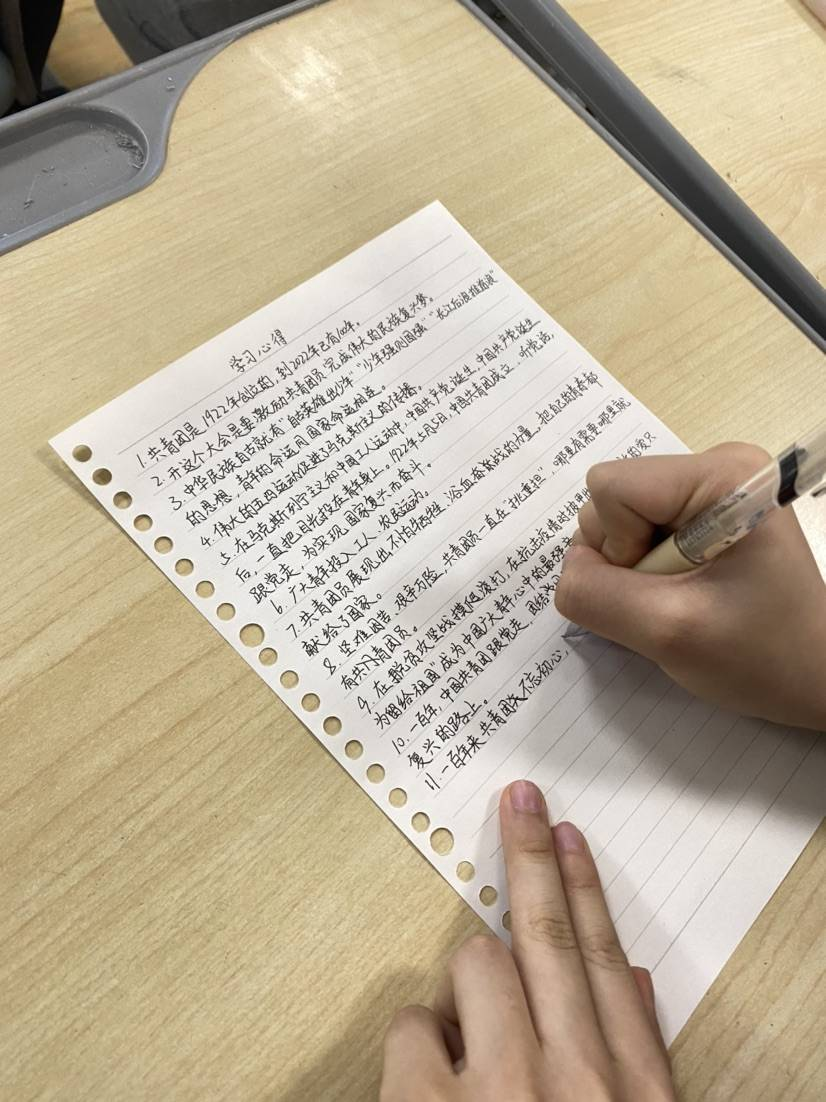 学习心得
1. 共青团是1922年创立的,到2022年已有100年。
2. 开这个大会是要激励共青团员完成伟大的民族复兴梦。
3. 中华民族自古就有“自古英雄出少年”“少年强则国强”“长江后浪推前浪”
的思想,青年的命运同国家命运相连。
4. 伟大的五四运动促进了马克斯主义的传播。
5. 在马克斯列宁主义和中国工人运动中,中国共产党诞生,中国共产党诞生
后,一直把目光投在青年身上。1922年5月5日,中国共青团成立,听党话,
跟党走,为实现国家复兴而奋斗。
6. 广大青年投入工人、农民运动。
7. 共青团员展现出不怕牺牲,浴血奋战的力量,把自己的青春都
献给了国家。
8. 坚难困苦、艰辛万险,共青团员一直在“挑重担”,哪里有需要哪里就
有共青团员。
9. 在脱贫攻坚战摸爬滚打,在抗击疫情时披甲 的“我只
为留给祖国”成为中国广大群众心中的最强
10. 一百年,中国共青团跟党走,团结
复兴的路上。
11. 一百年来共青团不忘初心,